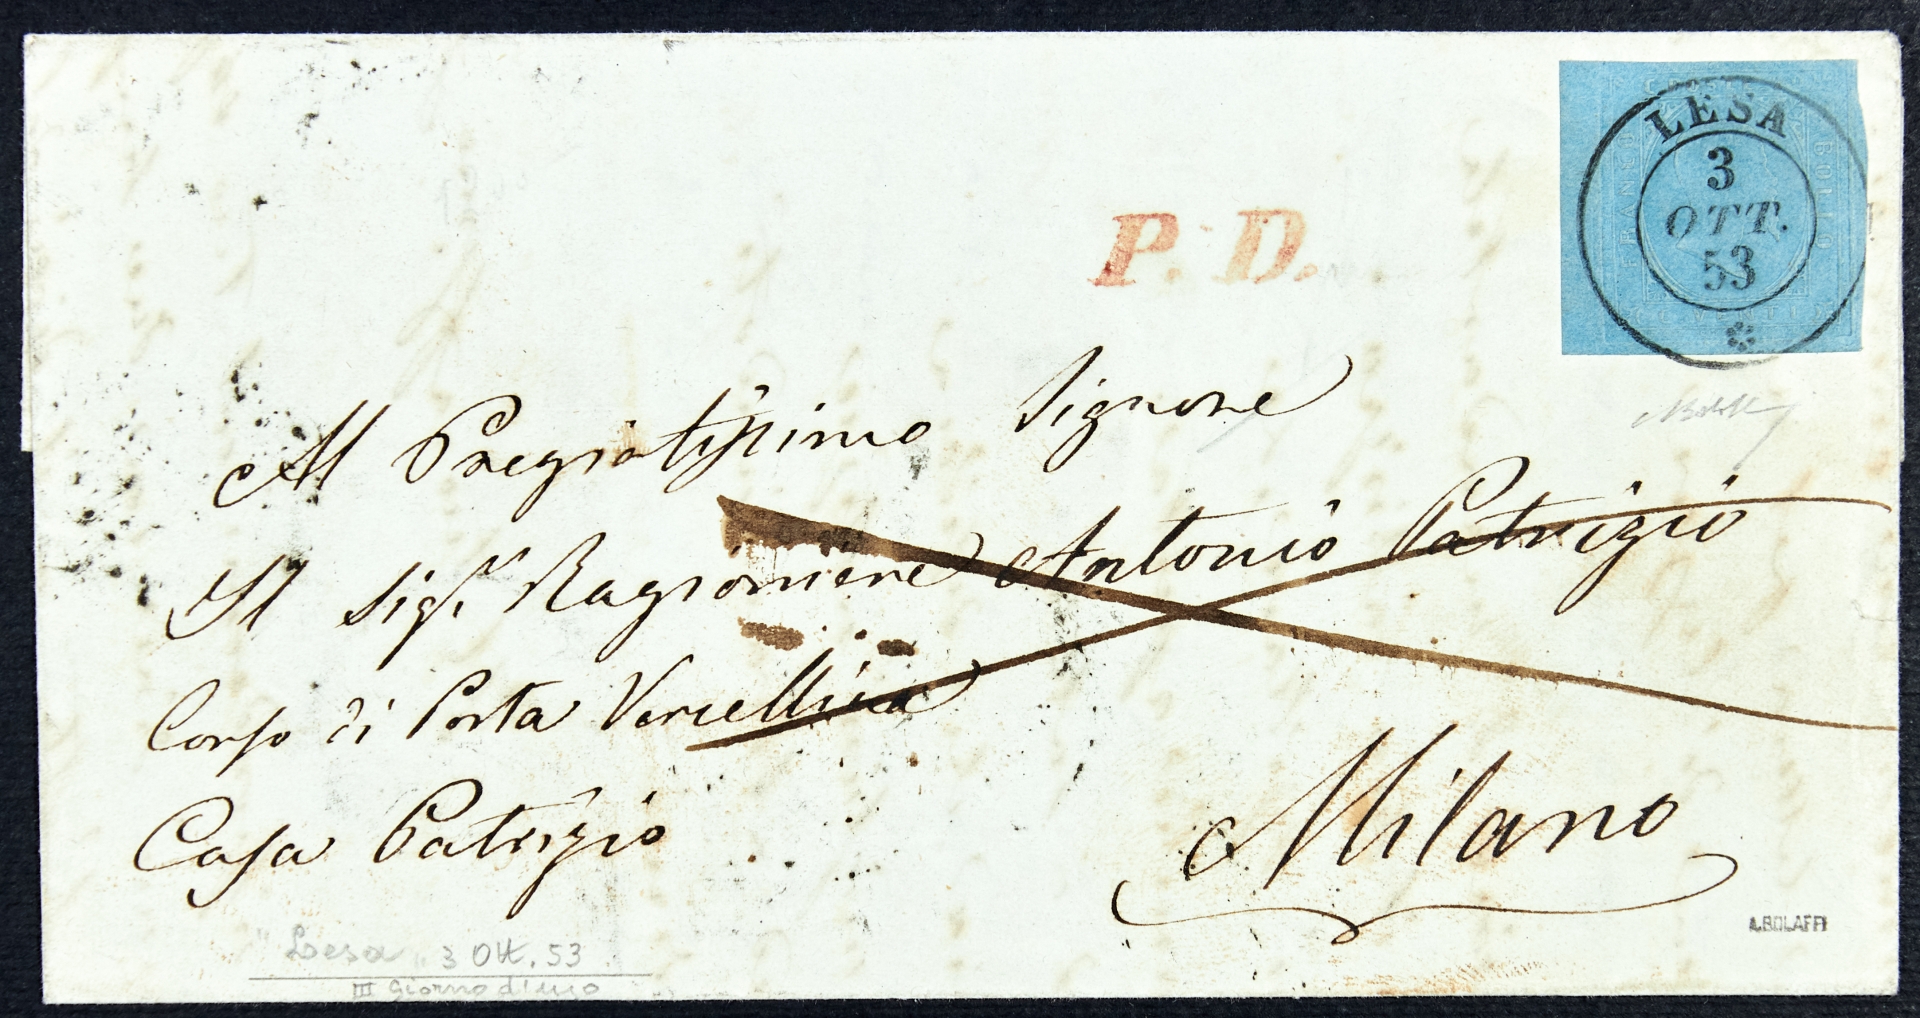 LESA
3
OTT.
53
FRANCO
BOLLO
P. D.
Al Pregiatissimo Signore
Il Sigr Ragioniere Antonio Patrizio
Corso di Porta Vercellina
Casa Patrizio
Milano
A.BOLAFFI
"Lesa" 3 Ott. 53
III giorno d'uso